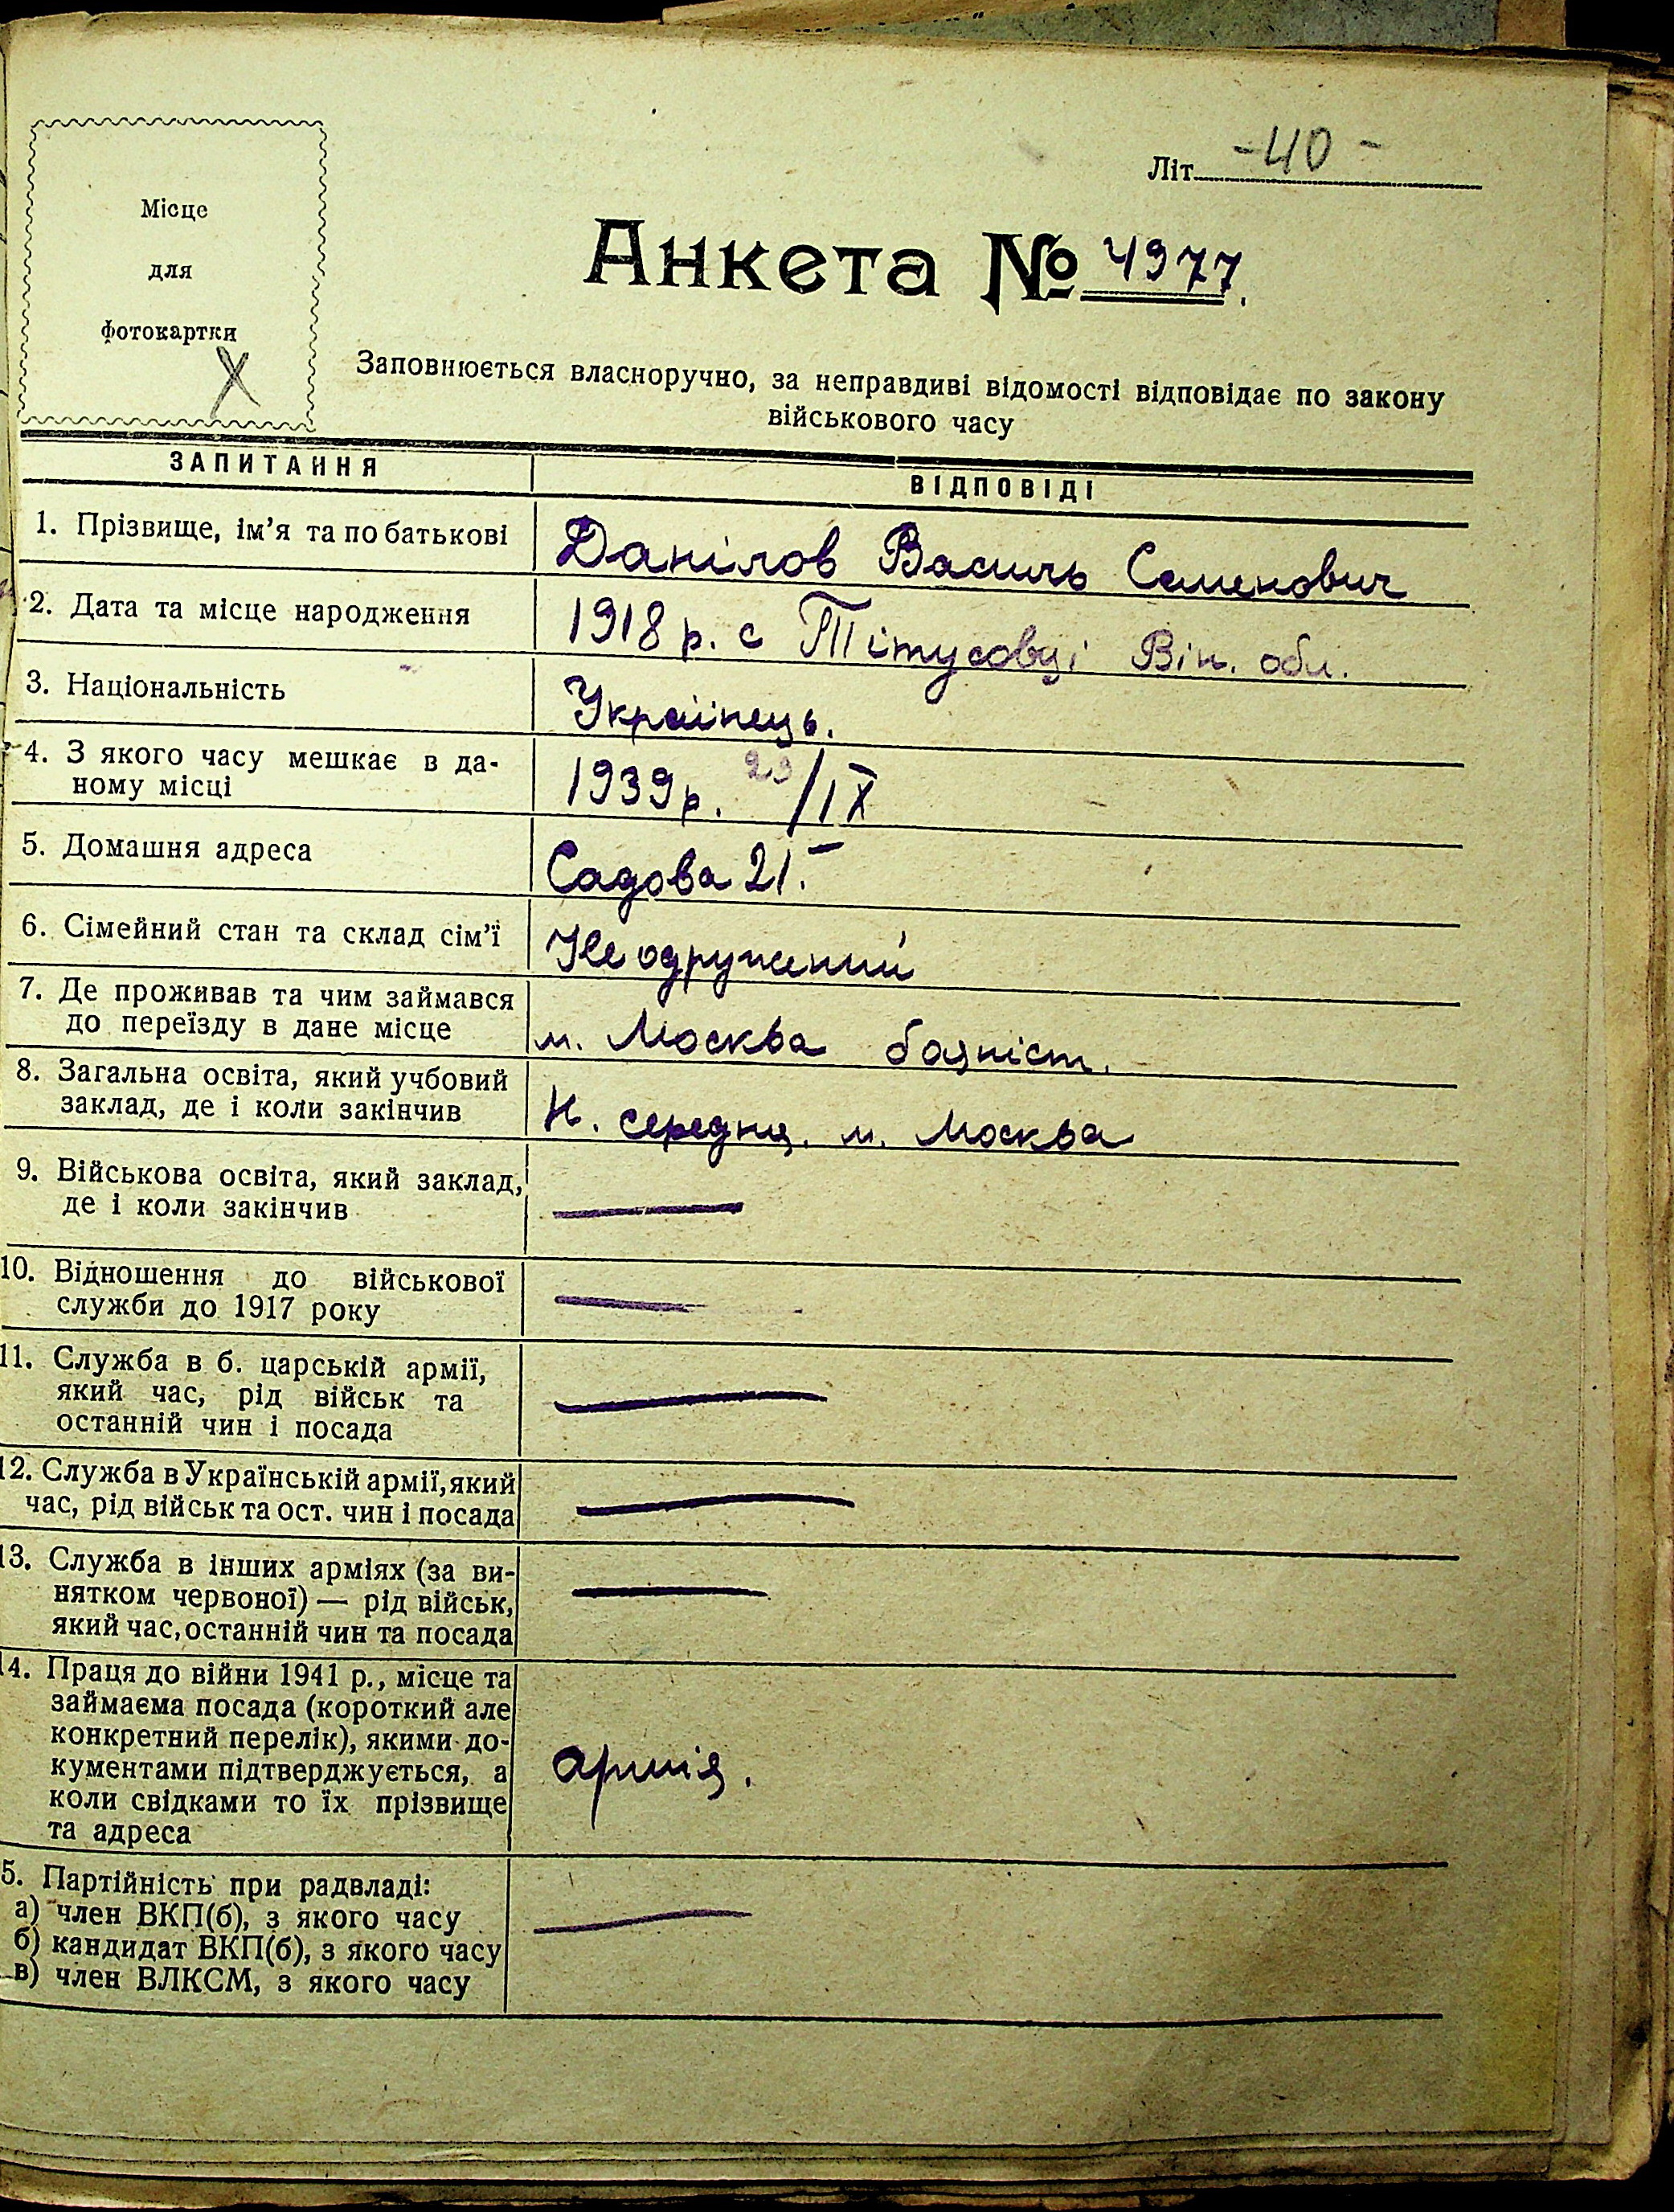 Місце
для
фотокартки
X
Літ. -40-
Анкета № 4977.
Заповнюється власноручно, за неправдиві відомості відповідає по закону
військового часу
ЗАПИТАННЯ
ВІДПОВІДІ
1. Прізвище, ім'я та по батькові
Данілов Василь Семенович
2. Дата та місце народження
1918 р. с Тітусовці Він. обл.
3. Національність
Українець.
4. З якого часу мешкає в да-
ному місці
1939 р. 29/IX
5. Домашня адреса
Садова 21.
6. Сімейний стан та склад сім'ї
Не одружений
7. Де проживав та чим займався
до переїзду в дане місце
м. Москва баяніст.
8. Загальна освіта, який учбовий
заклад, де і коли закінчив
Н. середня. м. Москва
9. Військова освіта, який заклад,
де і коли закінчив
—
10. Відношення до військової
служби до 1917 року
—
11. Служба в б. царській армії,
який час, рід військ та
останній чин і посада
—
12. Служба в Українській армії, який
час, рід військ та ост. чин і посада
—
13. Служба в інших арміях (за ви-
нятком червоної) — рід військ,
який час, останній чин та посада
—
14. Праця до війни 1941 р., місце та
займаєма посада (короткий але
конкретний перелік), якими до-
кументами підтверджується, а
коли свідками то їх прізвище
та адреса
армія.
5. Партійність при радвладі:
а) член ВКП(б), з якого часу
б) кандидат ВКП(б), з якого часу
в) член ВЛКСМ, з якого часу
—